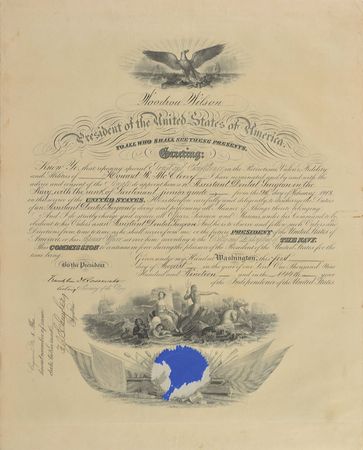 Woodrow Wilson
President of the United States of America.
TO ALL WHO SHALL SEE THESE PRESENTS,
Greeting:
Know Ye, that reposing special Trust and Confidence in the Patriotism, Valor, Fidelity
and Abilities of Howard R. McCleery and by and with the
advice and consent of the Senate, do appoint him Assistant Dental Surgeon in the
Navy, with the rank of Lieutenant junior grade from the of February 1918
in the service of the UNITED STATES. He is therefore carefully and diligently to discharge the Duties
of an Assistant Dental Surgeon by doing and performing all Manner of Things thereunto belonging.
And I do strictly charge and require all Officers, Seamen and Marines under his Command to be
obedient to his Orders as an Assistant Dental Surgeon And he is to observe and follow such Orders and
Directions from time to time as he shall receive from me, or the future PRESIDENT of the United States of
America, or his Superior Officer set over him, according to the Rules and Discipline of THE NAVY.
This COMMISSION to continue in force during the pleasure of the President of the United States for the
time being.
Given under my Hand at Washington, this first
By the President day of August in the year of our Lord One Thousand Nine
Franklin D Roosevelt Hundred and Nineteen and in the 144th year
Acting Secretary of the Navy of the Independence of the United States.